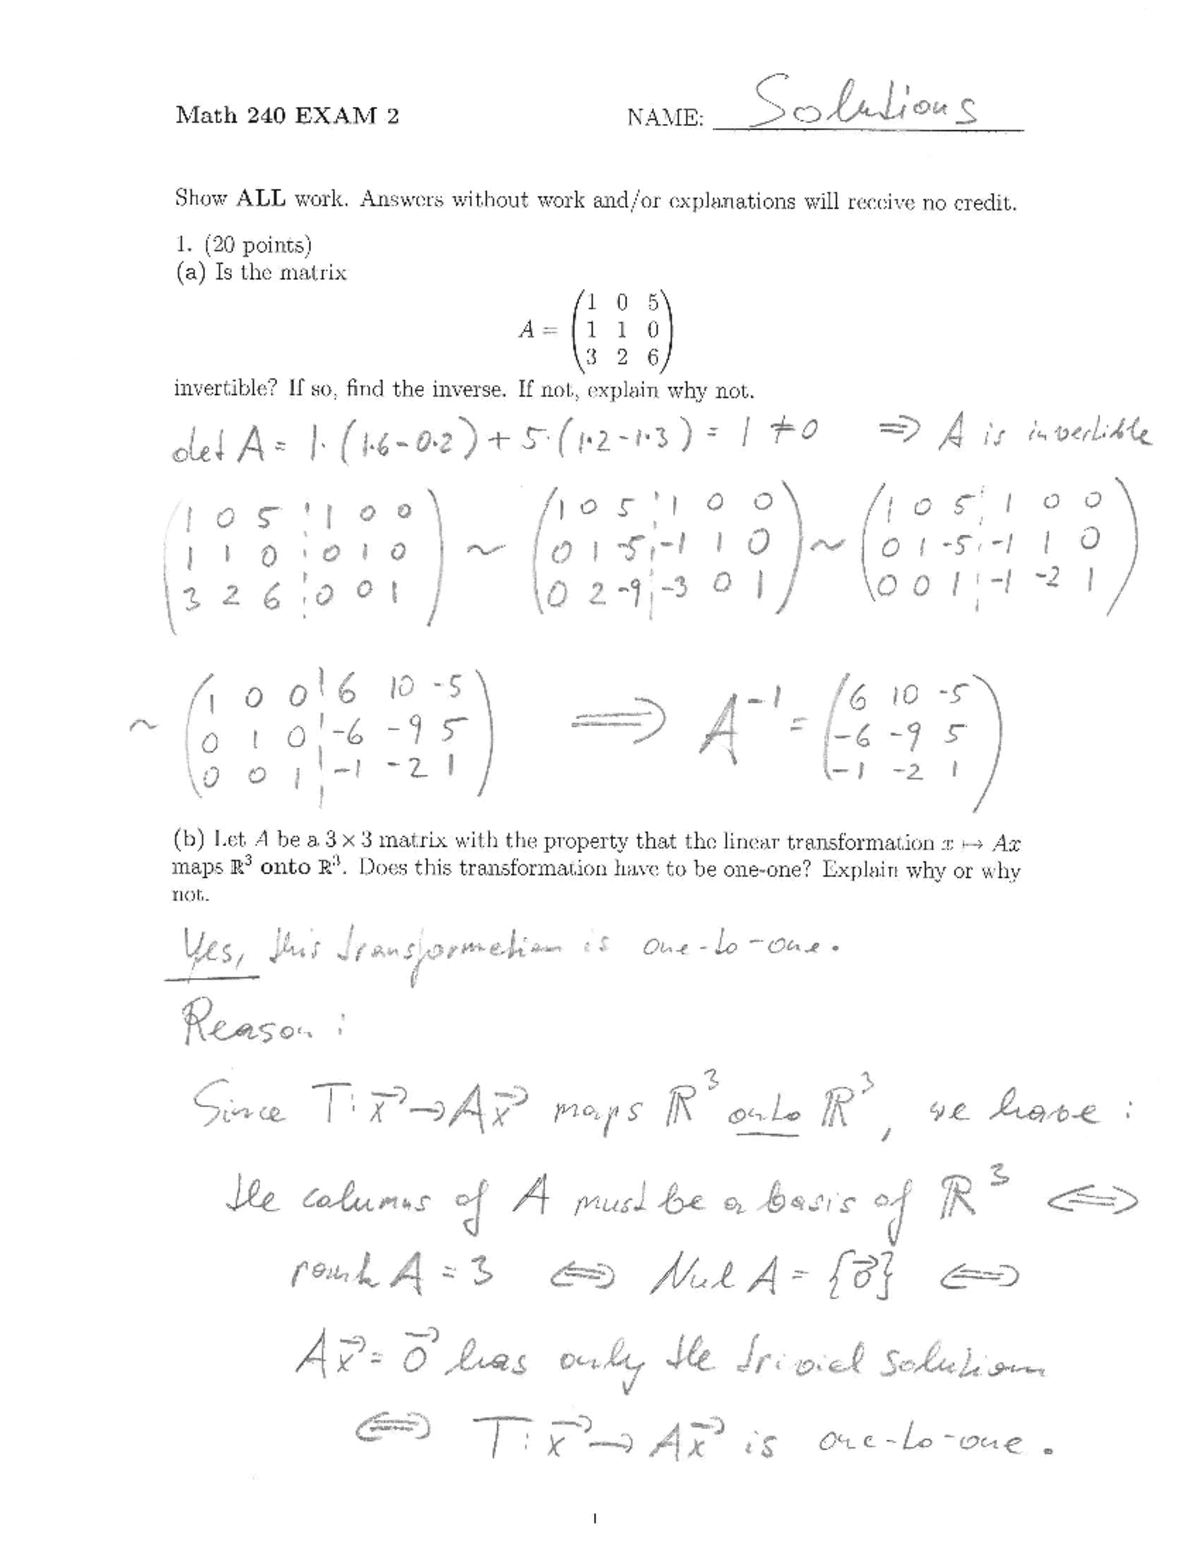 Math 240 EXAM 2 NAME: Solutions
Show ALL work. Answers without work and/or explanations will receive no credit.
1. (20 points)
(a) Is the matrix
1 0 5
A = 1 1 0
3 2 6
invertible? If so, find the inverse. If not, explain why not.
det A = 1·(1·6-0·2)+5·(1·2-1·3) = 1 ≠0 ⇒ A is invertible
1 0 5 1 0 0 1 0 5 1 0 0 1 0 5 1 0 0
1 1 0 0 1 0 ~ 0 1 -5 -1 1 0 ~ 0 1 -5 -1 1 0
3 2 6 0 0 1 0 2 -9 -3 0 1 0 0 1 -1 -2 1
1 0 0 6 10 -5 6 10 -5
~ 0 1 0 -6 -9 5 ⟹ A⁻¹ = -6 -9 5
0 0 1 -1 -2 1 -1 -2 1
(b) Let A be a 3 × 3 matrix with the property that the linear transformation x ↦ Ax
maps ℝ³ onto ℝ³. Does this transformation have to be one-one? Explain why or why
not.
Yes, this transformation is one-to-one.
Reason:
Since T: x⃗→Ax⃗ maps ℝ³ onto ℝ³, we have:
the columns of A must be a basis of ℝ³ ⟺
rank A = 3 ⟺ Nul A = {0⃗} ⟺
Ax⃗ = 0⃗ has only the trivial solution
⟺ T: x⃗→Ax⃗ is one-to-one.
1